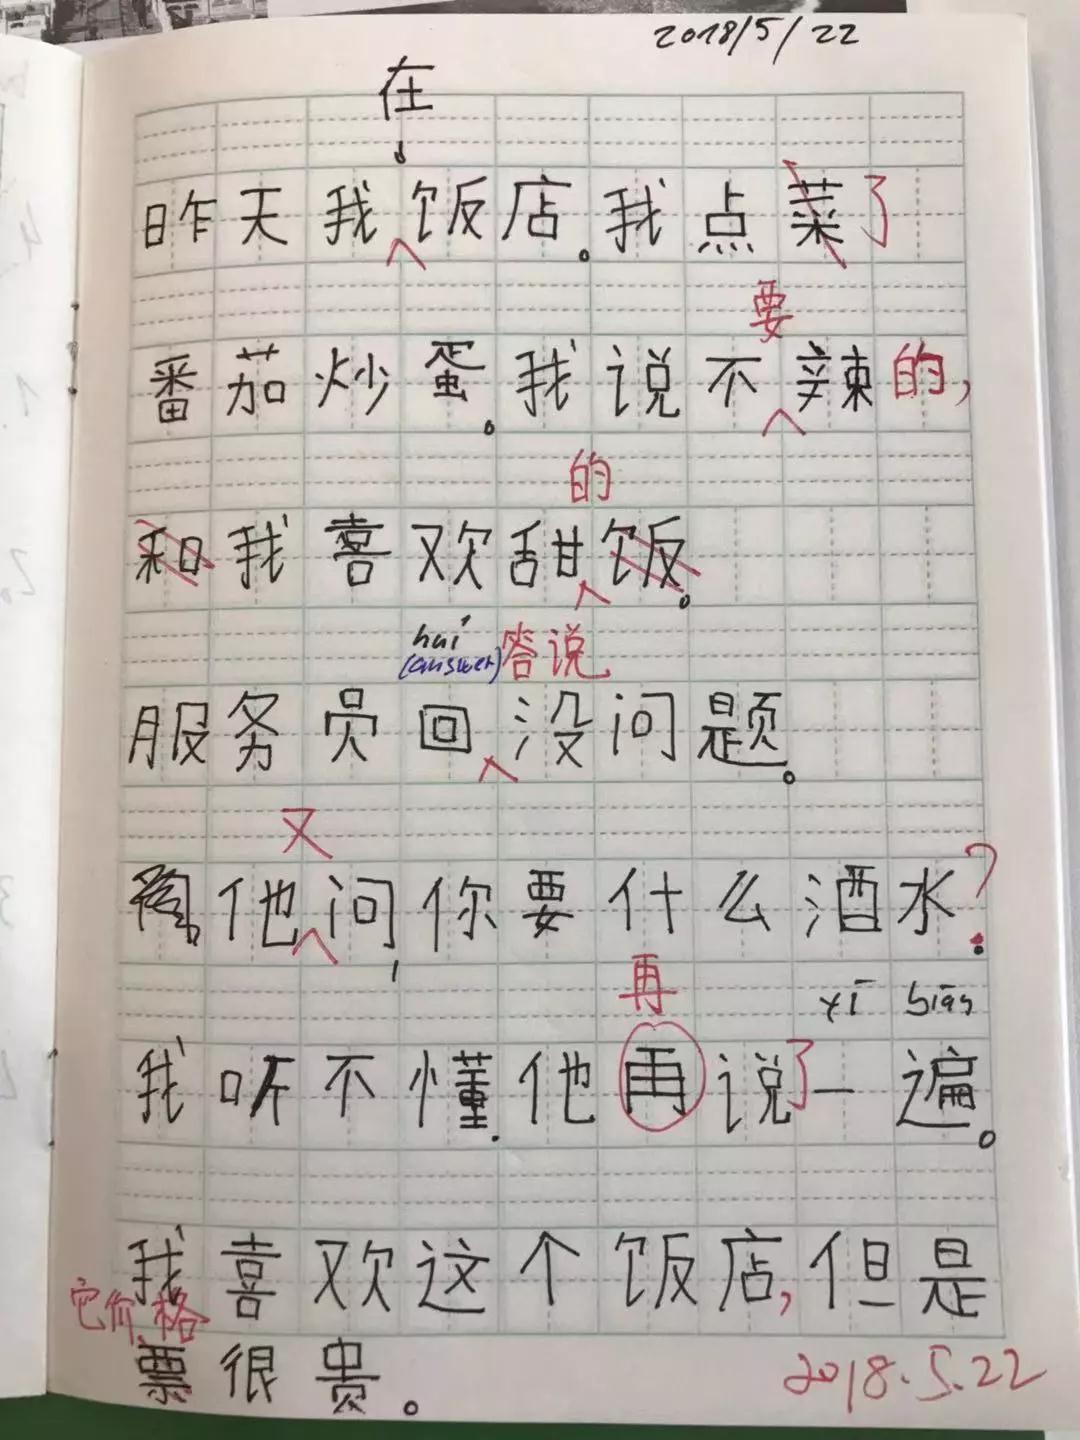 2018/5/22
在
昨天我饭店。我点菜了
要
番茄炒蛋。我说不辣的,
的
和我喜欢甜饭。
huí (answer) 答说
服务员回没问题。
又
他问,你要什么酒水?
再 yī biàn
我听不懂.他再说了一遍。
我喜欢这个饭店,但是
它价格
票很贵。
2018.5.22